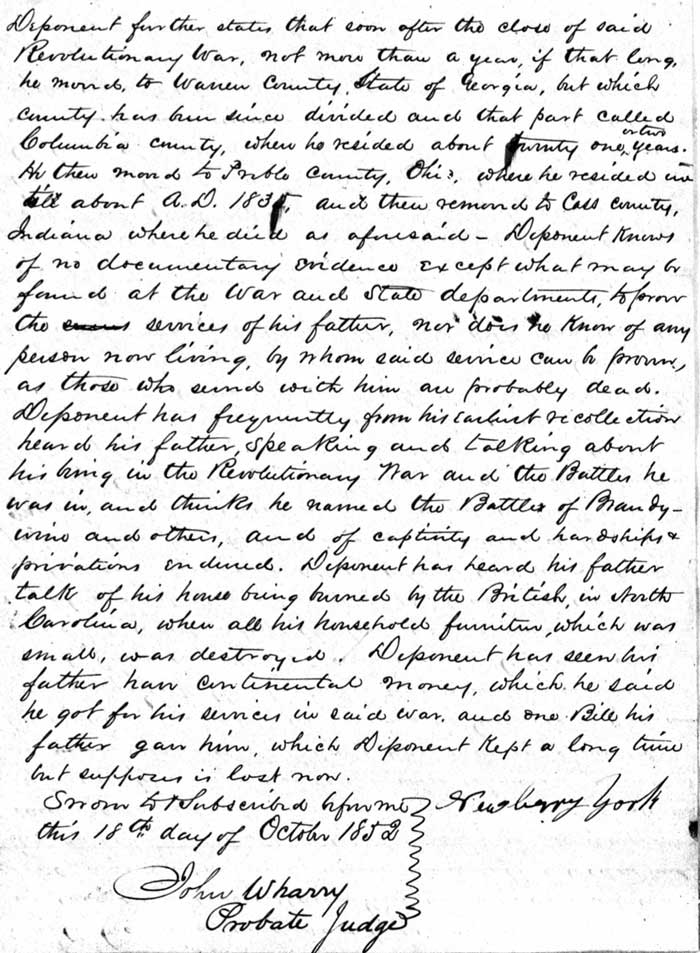 Deponent further states that soon after the close of said
Revolutionary War, not more than a year, if that long,
he moved, to Warren County, State of Georgia, but which
county has been since divided and that part called
Columbia county, where he resided about twenty one or two years.
He then moved to Preble County, Ohio, where he resided un
till about A.D. 183, and then removed to Cass County,
Indiana where he died as aforesaid - Deponent Knows
of no documentary evidence except what may be
found at the War and State departments, to prove
the services of his father, nor does he Know of any
person now living, by whom said service can be proven,
as those who served with him are probably dead.
Deponent has frequently from his earliest recollection
heard his father, speaking and talking about
his being in the Revolutionary War and the Battles he
was in, and thinks he named the Battles of Brandy-
wine and others, and of captivity and hardships &
privations endured. Deponent has heard his father
talk of his house being burned by the British, in North
Carolina, when all his household furniture, which was
small, was destroyed. Deponent has seen his
father have continental money, which he said
he got for his services in said war, and one Bill his
father gave him, which Deponent Kept a long time
but supposes is lost now.
Sworn to & Subscribed before me
this 18th day of October 1852
Newberry York
John Wharry
Probate Judge